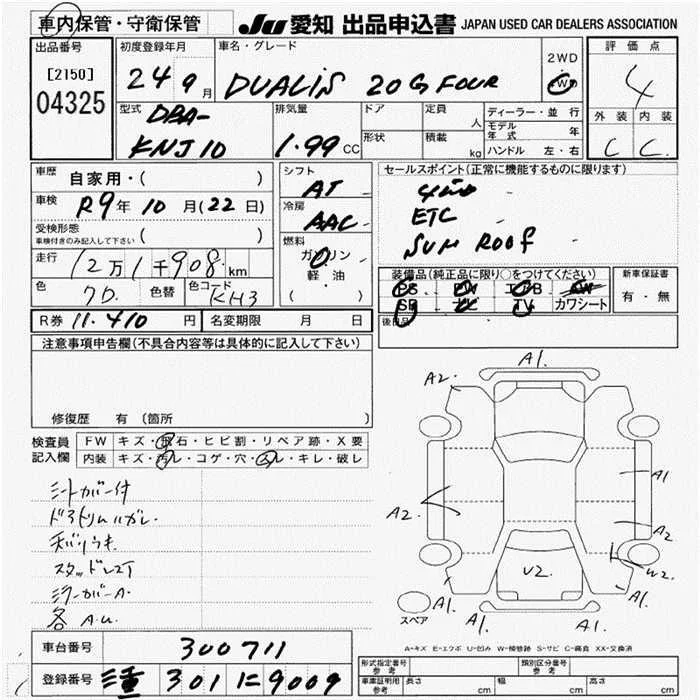 車内保管・守衛保管
JU 愛知 出品申込書 JAPAN USED CAR DEALERS ASSOCIATION
出品番号
[2150]
04325
初度登録年月
24 9月
車名・グレード
DUALIS 20G FOUR
2WD
4WD
評価点
4
外装 内装
C C
型式
DBA-
KNJ10
排気量
1.99 CC
ドア
形状
定員 人
積載 kg
ディーラー・並行
モデル年式 年
ハンドル 左・右
車歴
自家用・( )
車検
R9年10月(22日)
受検形態
車検付きのみ記入して下さい ( )
走行
12万1千908km
色
7D.
色替
色コード
KH3
シフト
AT
冷房
AAC
燃料
ガソリン
軽・油
( )
セールスポイント(正常に機能するものに限ります)
4WD
ETC
SUN ROOF
装備品(純正品に限り○をつけてください)
PS PW エアB AW
SR TV カワシート
新車保証書
有・無
後日品
R券 11.410 円
名変期限 月 日
注意事項申告欄(不具合内容等は具体的に記入して下さい)
修復歴 有(箇所 )
検査員記入欄
FW キズ・飛石・ヒビ割・リペア跡・X要
内装 キズ・汚レ・コゲ・穴・スレ・キレ・破レ
シートカバー付
ドアトリムハガレ
スタッドレスT
ミラーカバーA.
各A.U.
A1.
A2.
A1
A2.
A2
W2.
W2
A1.
A1.
A1.
スペア
A-キズ E-エクボ U-凹み W-補修跡 S-サビ C-腐食 XX-交換済
車台番号
300711
登録番号
三重 301 に 9009
形式指定番号
参考
類別区分番号
車庫証明用
参考
長さ cm
幅 cm
高さ cm